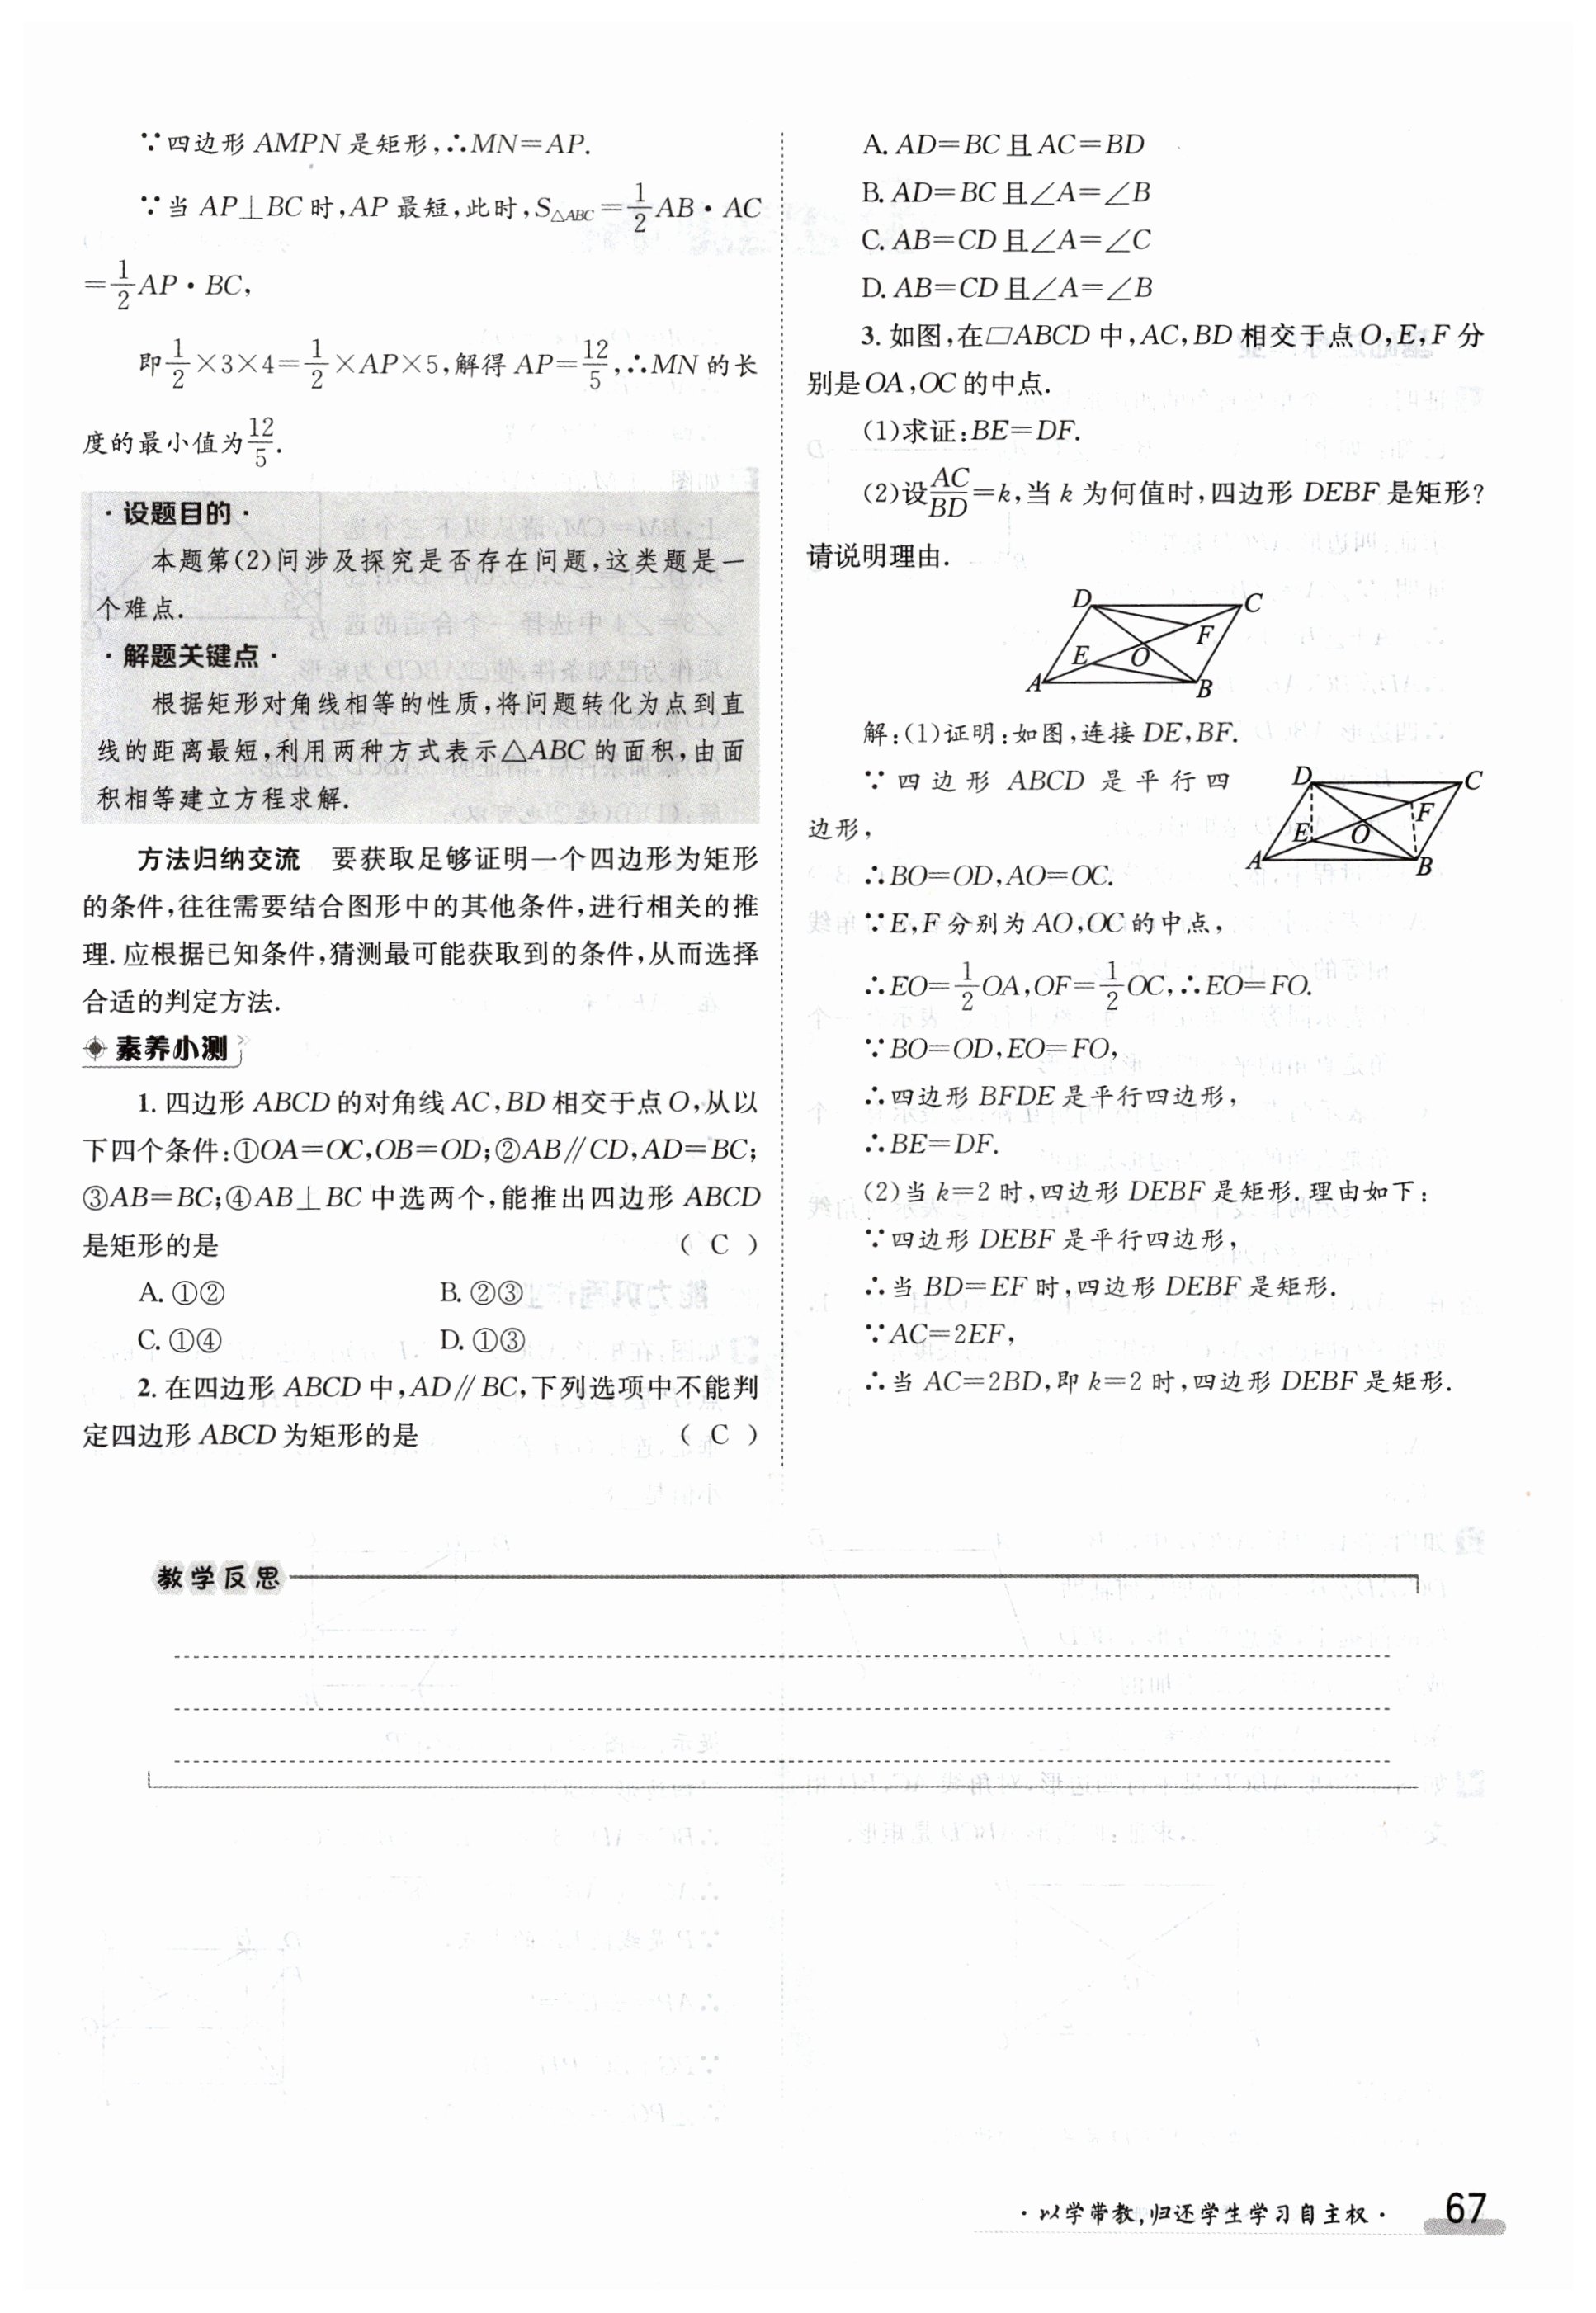 ∵四边形 AMPN 是矩形,∴MN=AP.
∵当 AP⊥BC 时,AP 最短,此时,S△ABC=1/2 AB·AC
=1/2 AP·BC,
即1/2×3×4=1/2×AP×5,解得 AP=12/5,∴MN 的长
度的最小值为12/5.
·设题目的·
本题第(2)问涉及探究是否存在问题,这类题是一
个难点.
·解题关键点·
根据矩形对角线相等的性质,将问题转化为点到直
线的距离最短,利用两种方式表示△ABC 的面积,由面
积相等建立方程求解.
方法归纳交流 要获取足够证明一个四边形为矩形
的条件,往往需要结合图形中的其他条件,进行相关的推
理.应根据已知条件,猜测最可能获取到的条件,从而选择
合适的判定方法.
素养小测
1. 四边形 ABCD 的对角线 AC,BD 相交于点 O,从以
下四个条件:①OA=OC,OB=OD;②AB∥CD,AD=BC;
③AB=BC;④AB⊥BC 中选两个,能推出四边形 ABCD
是矩形的是 ( C )
A. ①② B. ②③
C. ①④ D. ①③
2. 在四边形 ABCD 中,AD∥BC,下列选项中不能判
定四边形 ABCD 为矩形的是 ( C )
A. AD=BC 且 AC=BD
B. AD=BC 且∠A=∠B
C. AB=CD 且∠A=∠C
D. AB=CD 且∠A=∠B
3. 如图,在▱ABCD 中,AC,BD 相交于点 O,E,F 分
别是 OA,OC 的中点.
(1)求证:BE=DF.
(2)设AC/BD=k,当 k 为何值时,四边形 DEBF 是矩形?
请说明理由.
D C
F
E O
A B
解:(1)证明:如图,连接 DE,BF.
∵四边形 ABCD 是平行四
边形,
D C
F
E O
A B
∴BO=OD,AO=OC.
∵E,F 分别为 AO,OC 的中点,
∴EO=1/2 OA,OF=1/2 OC,∴EO=FO.
∵BO=OD,EO=FO,
∴四边形 BFDE 是平行四边形,
∴BE=DF.
(2)当 k=2 时,四边形 DEBF 是矩形.理由如下:
∵四边形 DEBF 是平行四边形,
∴当 BD=EF 时,四边形 DEBF 是矩形.
∵AC=2EF,
∴当 AC=2BD,即 k=2 时,四边形 DEBF 是矩形.
教学反思
·以学带教,归还学生学习自主权· 67